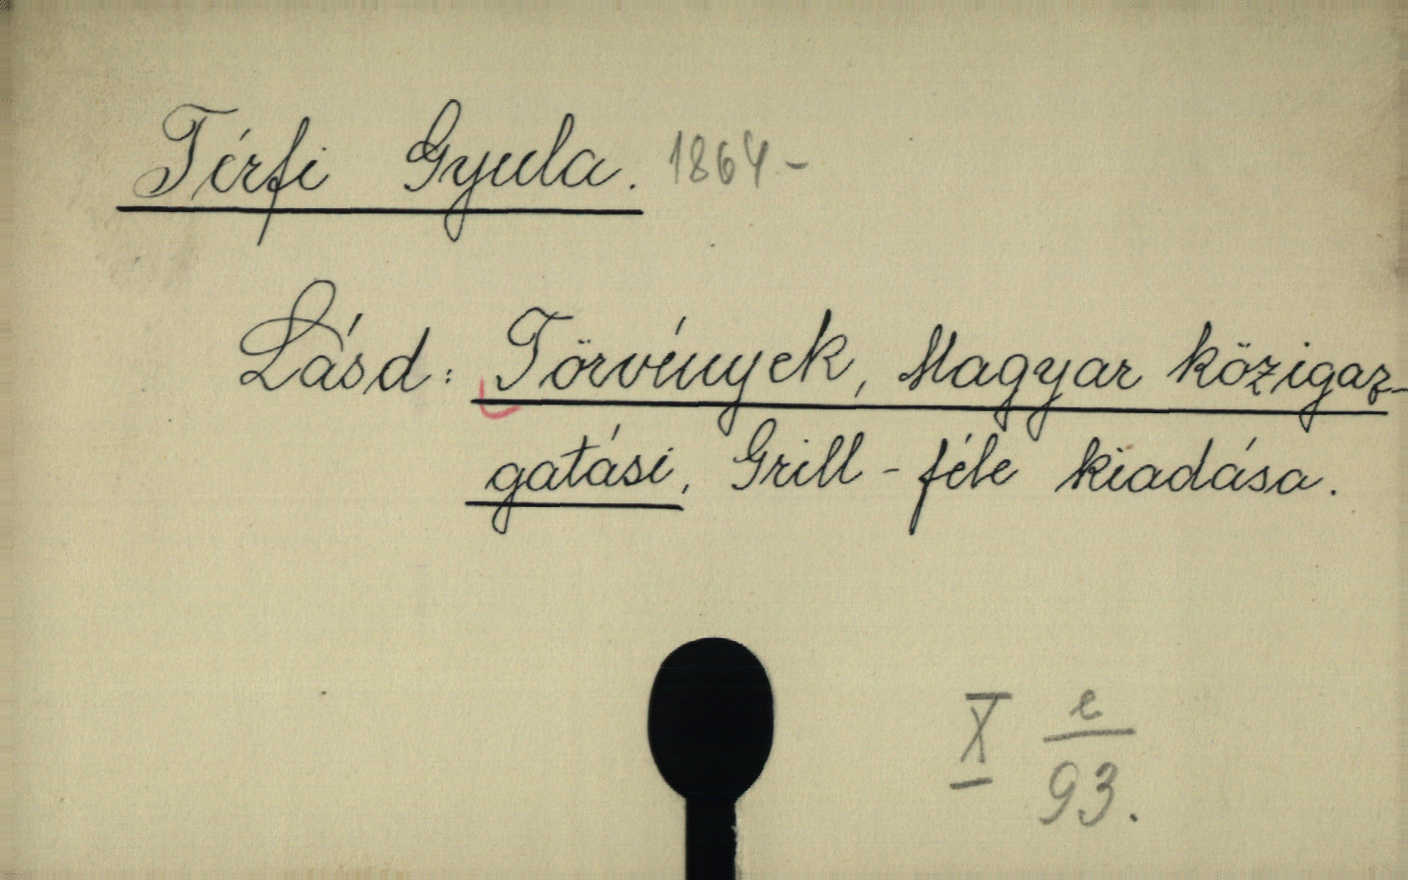 Térfi Gyula. 1864-
Lásd: Törvények, Magyar közigaz-
gatási, Grill-féle kiadása.
X e/93.